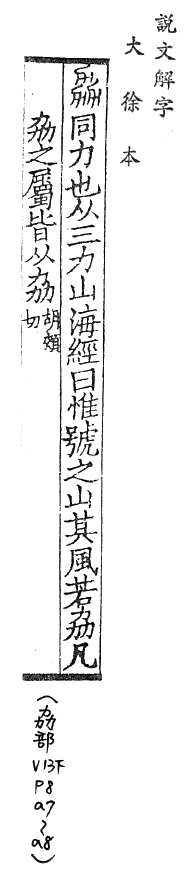 説文解字
大徐本
劦同力也从三力山海經曰惟號之山其風若劦凡
劦之屬皆从劦胡頰切
(劦部
V13下
P8
a7
~
a8)